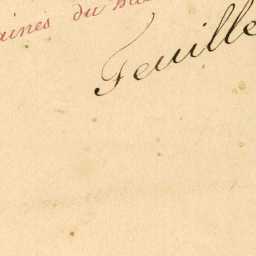 aines du
Feuille